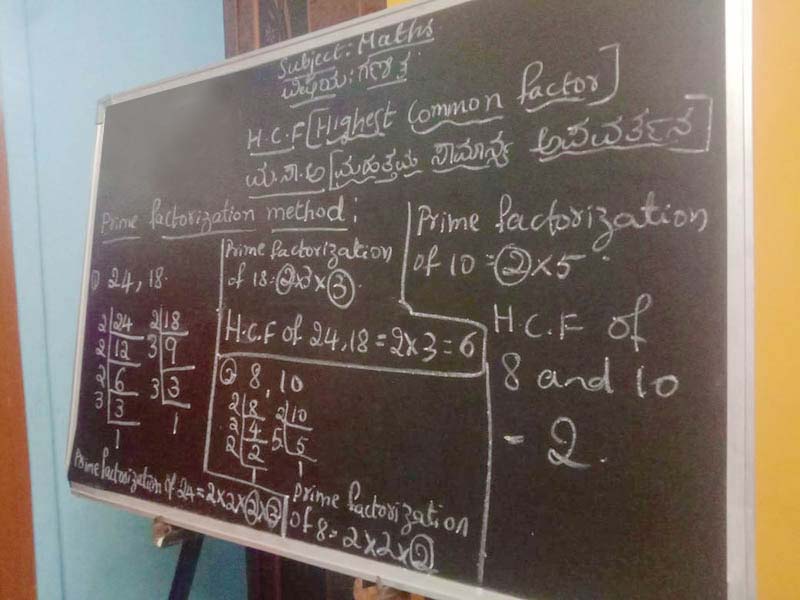 Subject: Maths
ವಿಷಯ: ಗಣಿತ
H.C.F [Highest Common factor]
ಮ.ಸಾ.ಅ [ಮಹತ್ತಮ ಸಾಮಾನ್ಯ ಅಪವರ್ತನ]
Prime factorization method:
① 24, 18.
2 24 2 18
2 12 3 9
2 6 3 3
3 3 1
1
Prime factorization of 24 = 2×2×②×③
Prime factorization
of 18 = ②×3×③
H.C.F of 24, 18 = 2×3 = 6
② 8, 10
2 8 2 10
2 4 5 5
2 2 1
1
Prime factorization
of 8 = 2×2×②
Prime factorization
of 10 = ②×5
H.C.F of
8 and 10
= 2.